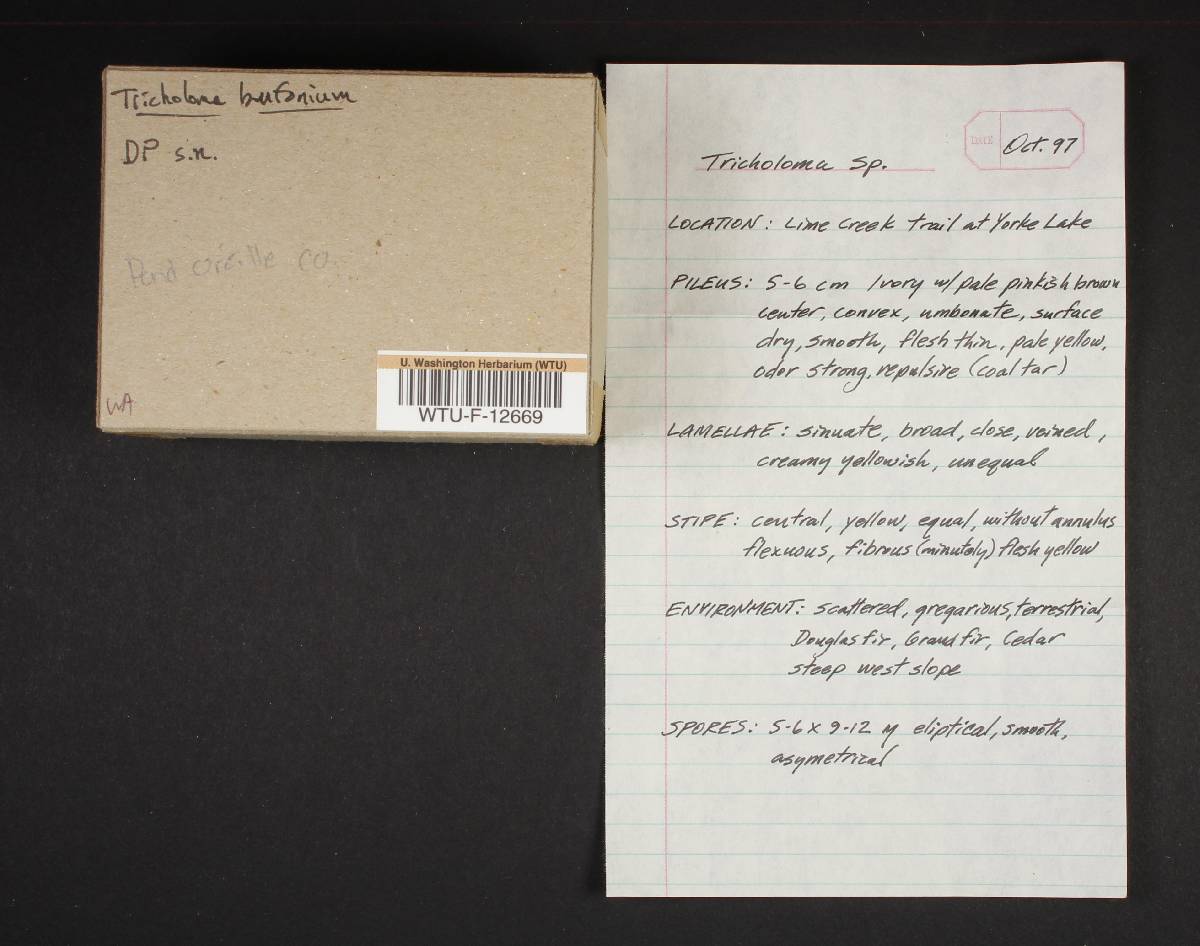 Tricholoma bufonium
DP s.n.
Pend oreille co.
WA
U. Washington Herbarium (WTU)
WTU-F-12669
DATE Oct. 97
Tricholoma sp.
LOCATION: Lime Creek trail at Yorke Lake
PILEUS: 5-6 cm Ivory w/ pale pinkish brown
center, convex, umbonate, surface
dry, smooth, flesh thin, pale yellow,
odor strong, repulsive (coal tar)
LAMELLAE: sinuate, broad, close, veined,
creamy yellowish, unequal
STIPE: central, yellow, equal, without annulus
flexuous, fibrous (minutely) flesh yellow
ENVIRONMENT: scattered, gregarious, terrestrial,
Douglas fir, Grand fir, Cedar
steep west slope
SPORES: 5-6 x 9-12 μ eliptical, smooth,
asymetrical